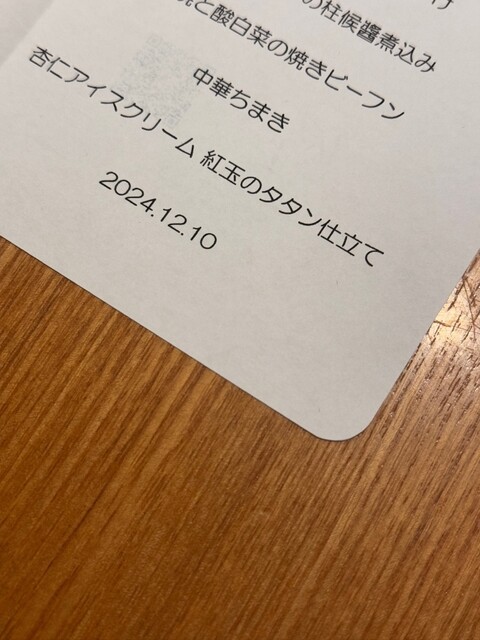 の柱候醬煮込み
と酸白菜の焼きビーフン
中華ちまき
杏仁アイスクリーム 紅玉のタタン仕立て
2024.12.10